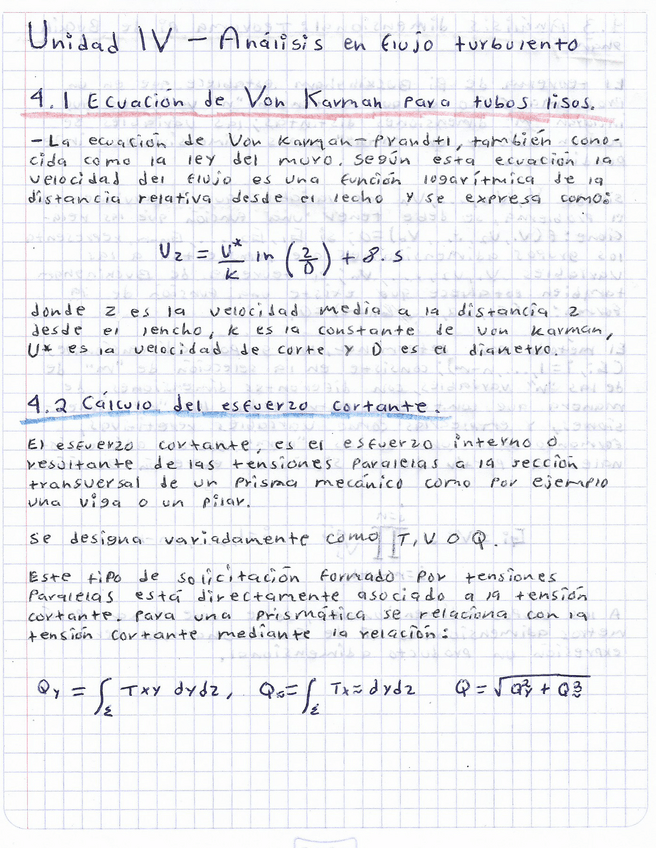 Unidad IV - Análisis en flujo turbulento
4.1 Ecuación de Von Karman para tubos lisos.
- La ecuación de Von Karman-Prandtl, también cono-
cida como la ley del muro. Según esta ecuación la
velocidad del flujo es una función logarítmica de la
distancia relativa desde el lecho y se expresa como:
Uz = U*/K ln (z/D) + 8.5
donde z es la velocidad media a la distancia z
desde el lencho, k es la constante de von Karman,
U* es la velocidad de corte y D es el diametro.
4.2 Cálculo del esfuerzo cortante.
El esfuerzo cortante, es el esfuerzo interno o
resultante de las tensiones paralelas a la sección
transversal de un prisma mecánico como por ejemplo
una viga o un pilar.
Se designa variadamente como T, V o Q.
Este tipo de solicitación formado por tensiones
paralelas está directamente asociado a la tensión
cortante. Para una prismática se relaciona con la
tensión cortante mediante la relación:
Qy = ∫Σ Txy dydz, Qz = ∫Σ Txz dydz Q = √Q²y + Q²z